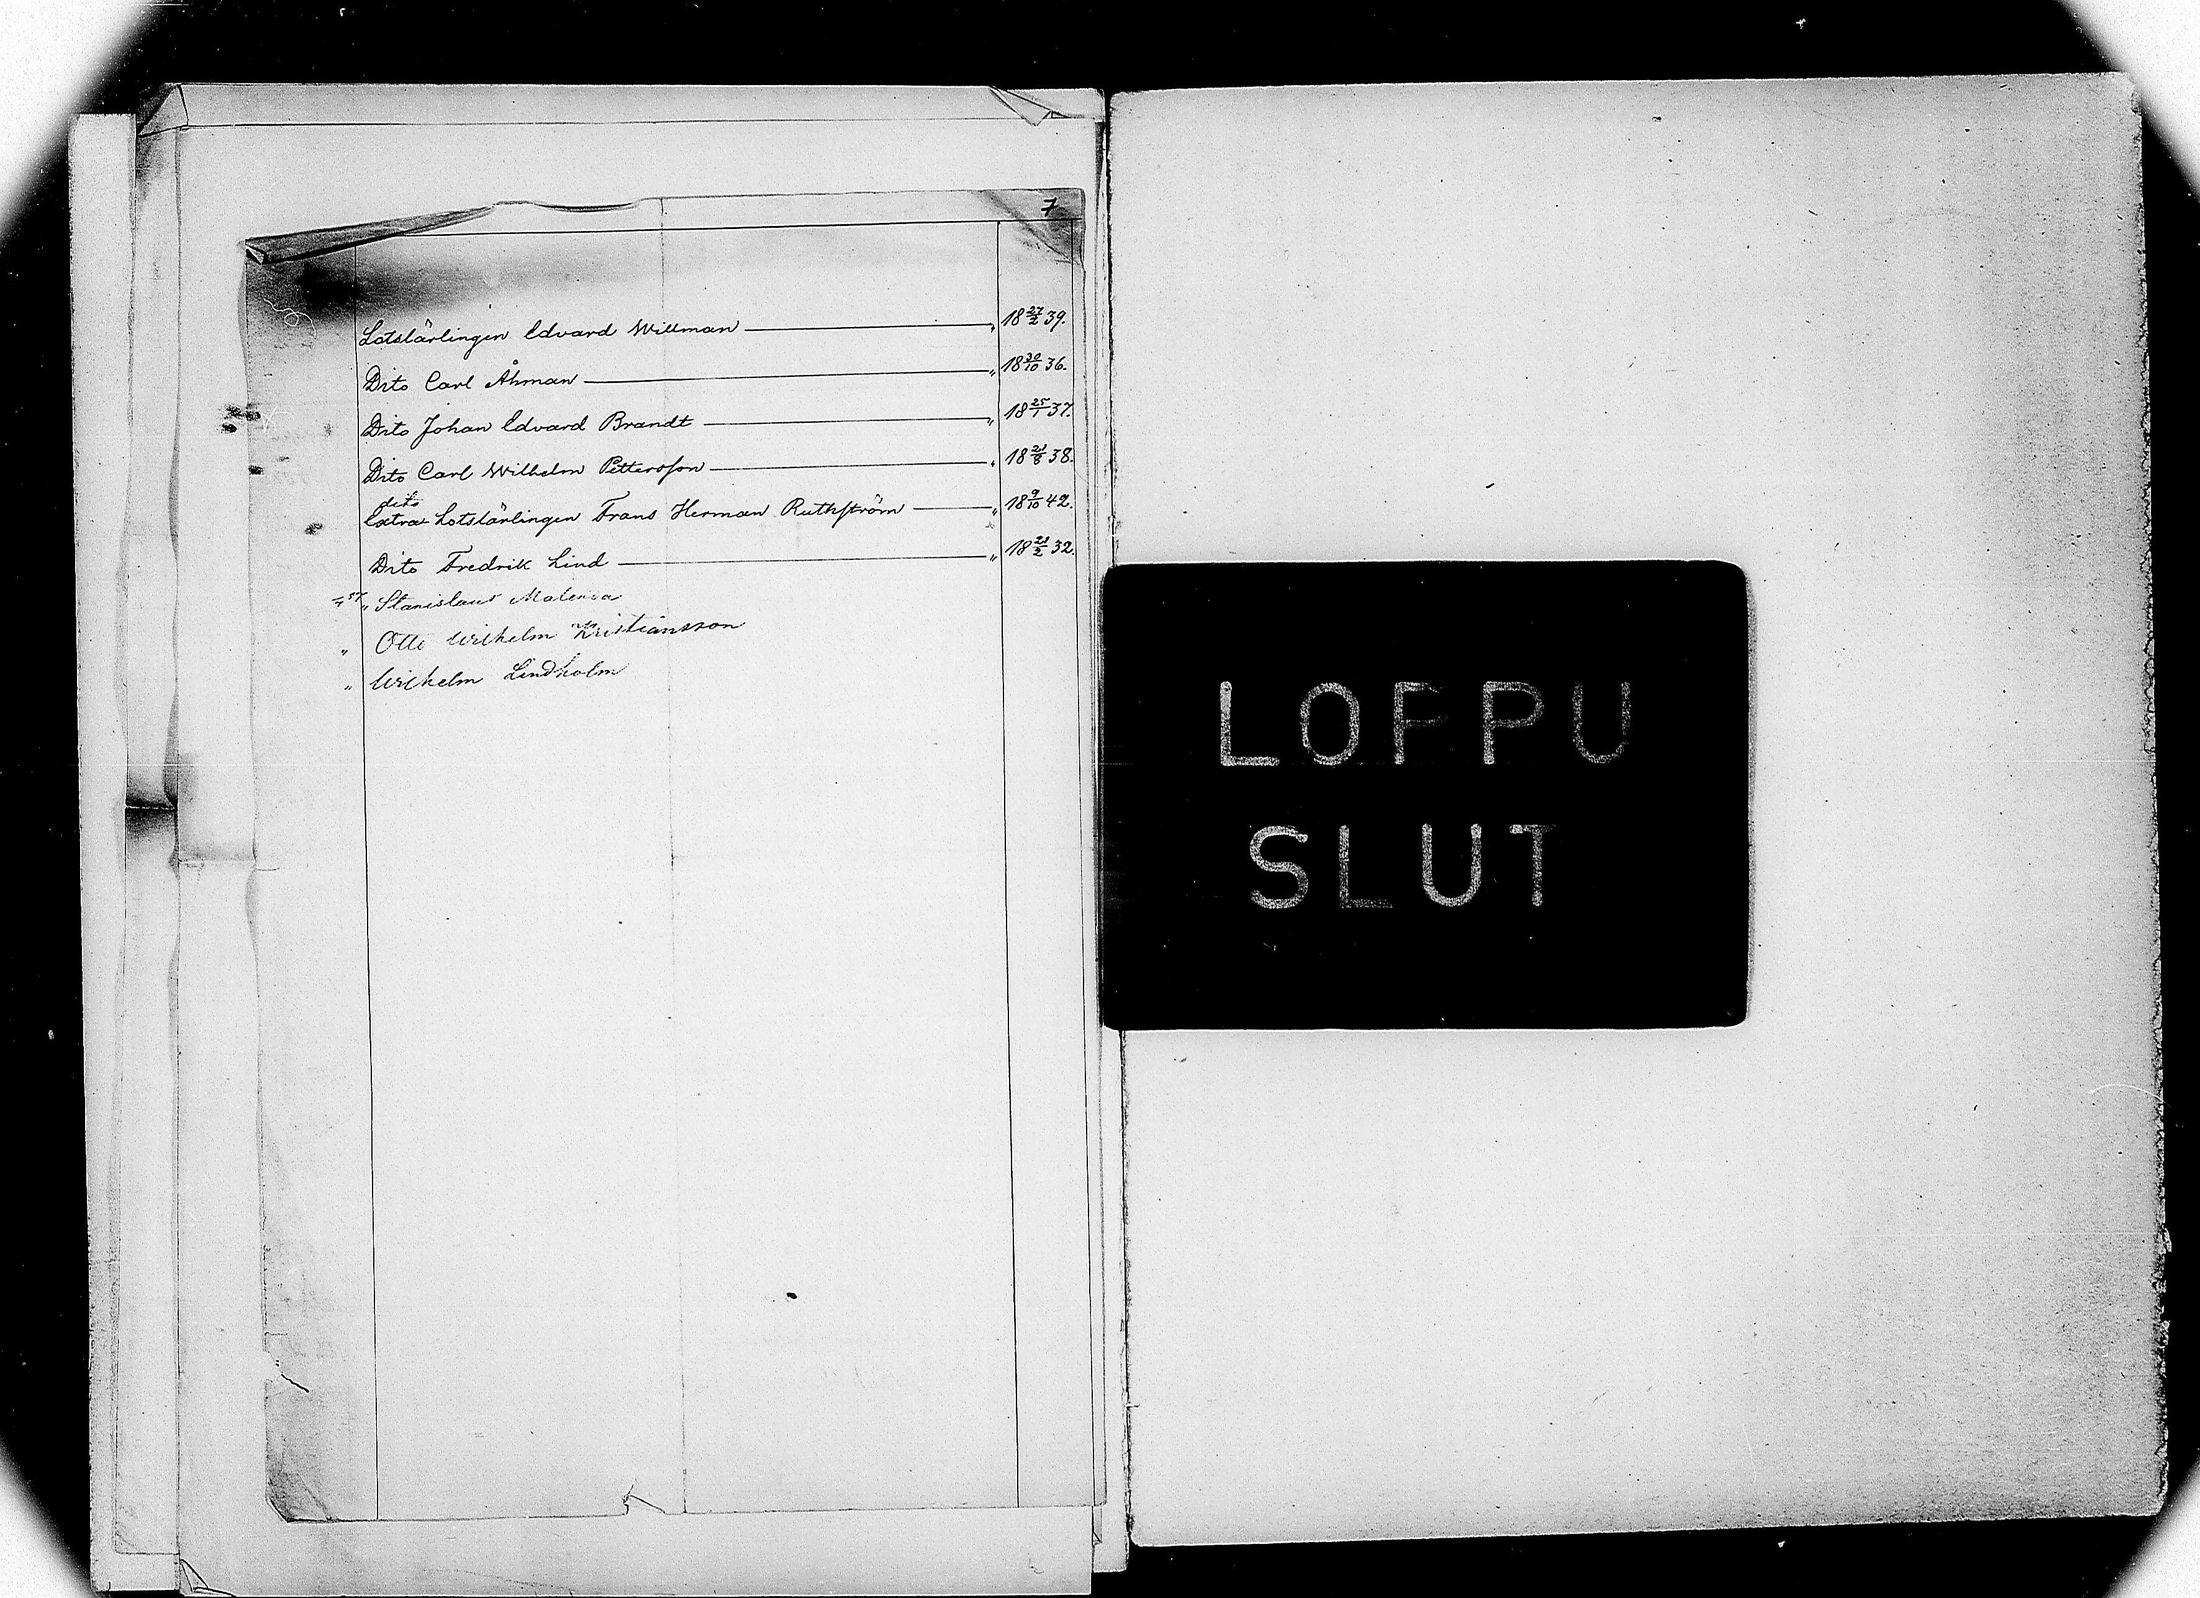 7.
Lotslärlingen Edvard Willman — „ 18 27/2 39.
Dito Carl Åhman — „ 18 30/10 36.
Dito Johan Edvard Brandt — „ 18 25/1 37.
Dito Carl Wilhelm Pettersson — „ 18 21/8 38.
dito
Extra Lotslärlingen Frans Herman Ruthström — „ 18 9/10 42.
Dito Fredrik Lind — „ 18 21/2 32.
„ Stanislaus
„ Otto Wilhelm Kristiansson
„ Wilhelm Lindholm
LOPPU
SLUT